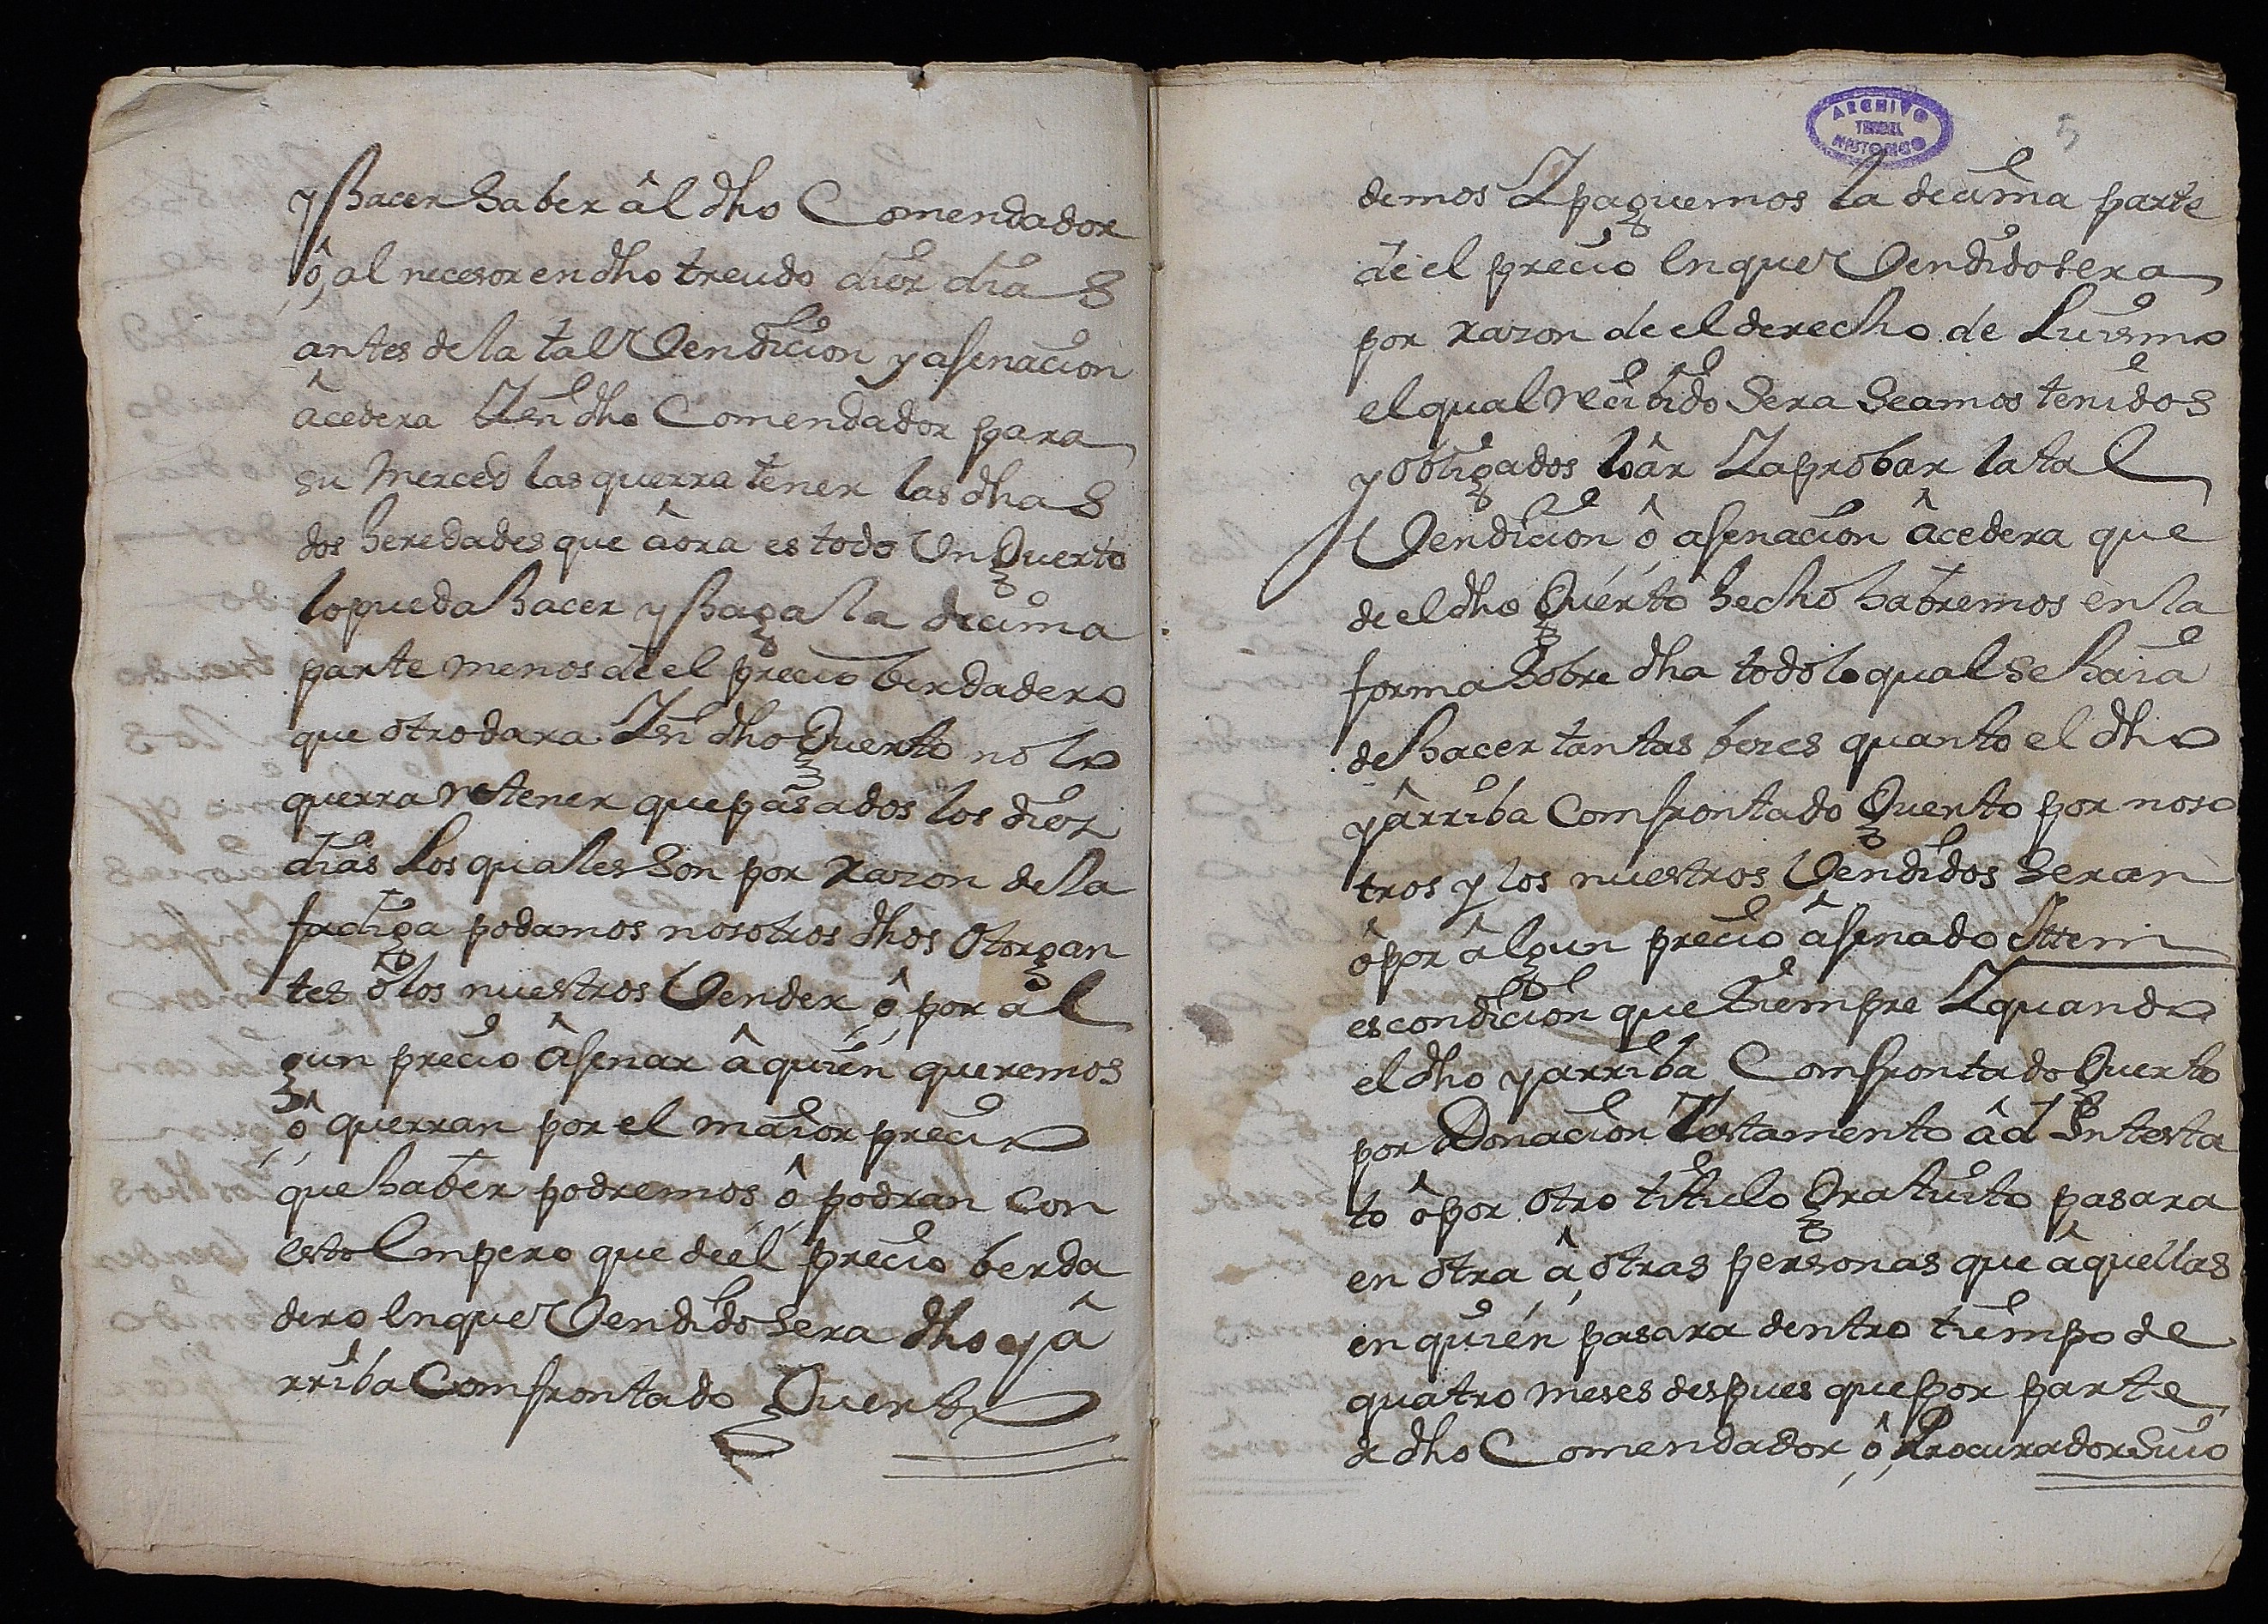 y hacer saber âl dho Comendador
ô, al recesor en dho treudo dier dias
antes de la tal Vendicion y asenacion
âcedera Y en dho Comendador para
su Merced las querra tener las dhas
dos heredades que âora es todo Un Guerto
lo pueda hacer y haga la decima
parte menos de el precio berdadero
que otro dara Y en dho Guerto no lo
querra retener que pasados los dioz
dias Los quales son por Razon de la
fadiga podamos nosotros dhos Otorgan
tes ô los nuestros Vender ô, por al
gun precio âsenar â quien queremos
ô, querran por el maior precio
que haber podremos ô podran con
esto Empero que de el precio berda
dero En que Vendido sera dho y â
rriba Comfrontado Guerto
ARCHIVO
TERUEL
HISTORICO
5
demos Y paguemos la decima parte
de el precio En que Vendido sera
por razon de el derecho de Luismo
el qual recibido sera seamos tenidos
y obligados loâr Y aprobar la tal
Vendicion, ô asenacion âcedera que
de el dho Guerto hecho habremos en la
forma sobre dha todo lo qual se haia
de hacer tantas beces quanto el dho
y ârriba Comfrontado Guerto por noso
tros y los nuestros Vendidos seran
ô por âlgun precio âsenado Ittem
es condicion que siempre Y quando
el dho y arriba Comfrontado Guerto
por Donacion Testamento âd Intesta
to ô por otro titulo Gratuito pasara
en otra â, otras personas que âquellas
en quien pasara dentro tiempo de
quatro meses despues que por parte
de dho Comendador ô, Procurador suio